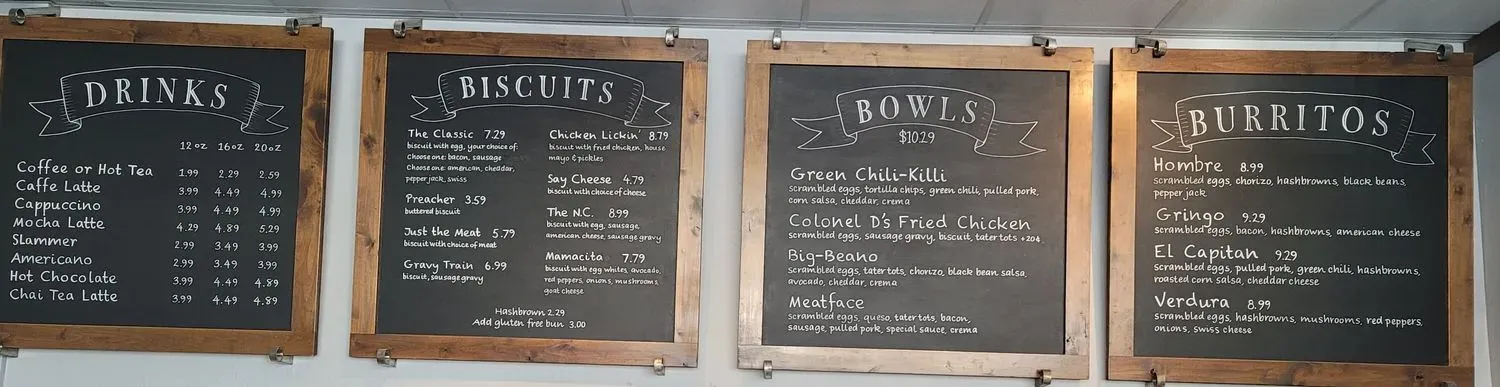 DRINKS
12 oz 16 oz 20 oz
Coffee or Hot Tea 1.99 2.29 2.59
Caffe Latte 3.99 4.49 4.99
Cappuccino 3.99 4.49 4.99
Mocha Latte 4.29 4.89 5.29
Slammer 2.99 3.49 3.99
Americano 2.99 3.49 3.99
Hot Chocolate 3.99 4.49 4.89
Chai Tea Latte 3.99 4.49 4.89
BISCUITS
The Classic 7.29
biscuit with egg, your choice of:
choose one: bacon, sausage
choose one: american, cheddar,
pepper jack, swiss
Preacher 3.59
buttered biscuit
Just the Meat 5.79
biscuit with choice of meat
Gravy Train 6.99
biscuit, sausage gravy
Chicken Lickin' 8.79
biscuit with fried chicken, house
mayo & pickles
Say Cheese 4.79
biscuit with choice of cheese
The N.C. 8.99
biscuit with egg, sausage,
american cheese, sausage gravy
Mamacita 7.79
biscuit with egg whites, avocado,
red peppers, onions, mushrooms,
goat cheese
Hashbrown 2.29
Add gluten free bun 3.00
BOWLS
$10.29
Green Chili-Killi
scrambled eggs, tortilla chips, green chili, pulled pork,
corn salsa, cheddar, crema
Colonel D's Fried Chicken
scrambled eggs, sausage gravy, biscuit, tater tots +20¢
Big-Beano
scrambled eggs, tater tots, chorizo, black bean salsa,
avocado, cheddar, crema
Meatface
scrambled eggs, queso, tater tots, bacon,
sausage, pulled pork, special sauce, crema
BURRITOS
Hombre 8.99
scrambled eggs, chorizo, hashbrowns, black beans,
pepper jack
Gringo 9.29
scrambled eggs, bacon, hashbrowns, american cheese
El Capitan 9.29
scrambled eggs, pulled pork, green chili, hashbrowns,
roasted corn salsa, cheddar cheese
Verdura 8.99
scrambled eggs, hashbrowns, mushrooms, red peppers,
onions, swiss cheese